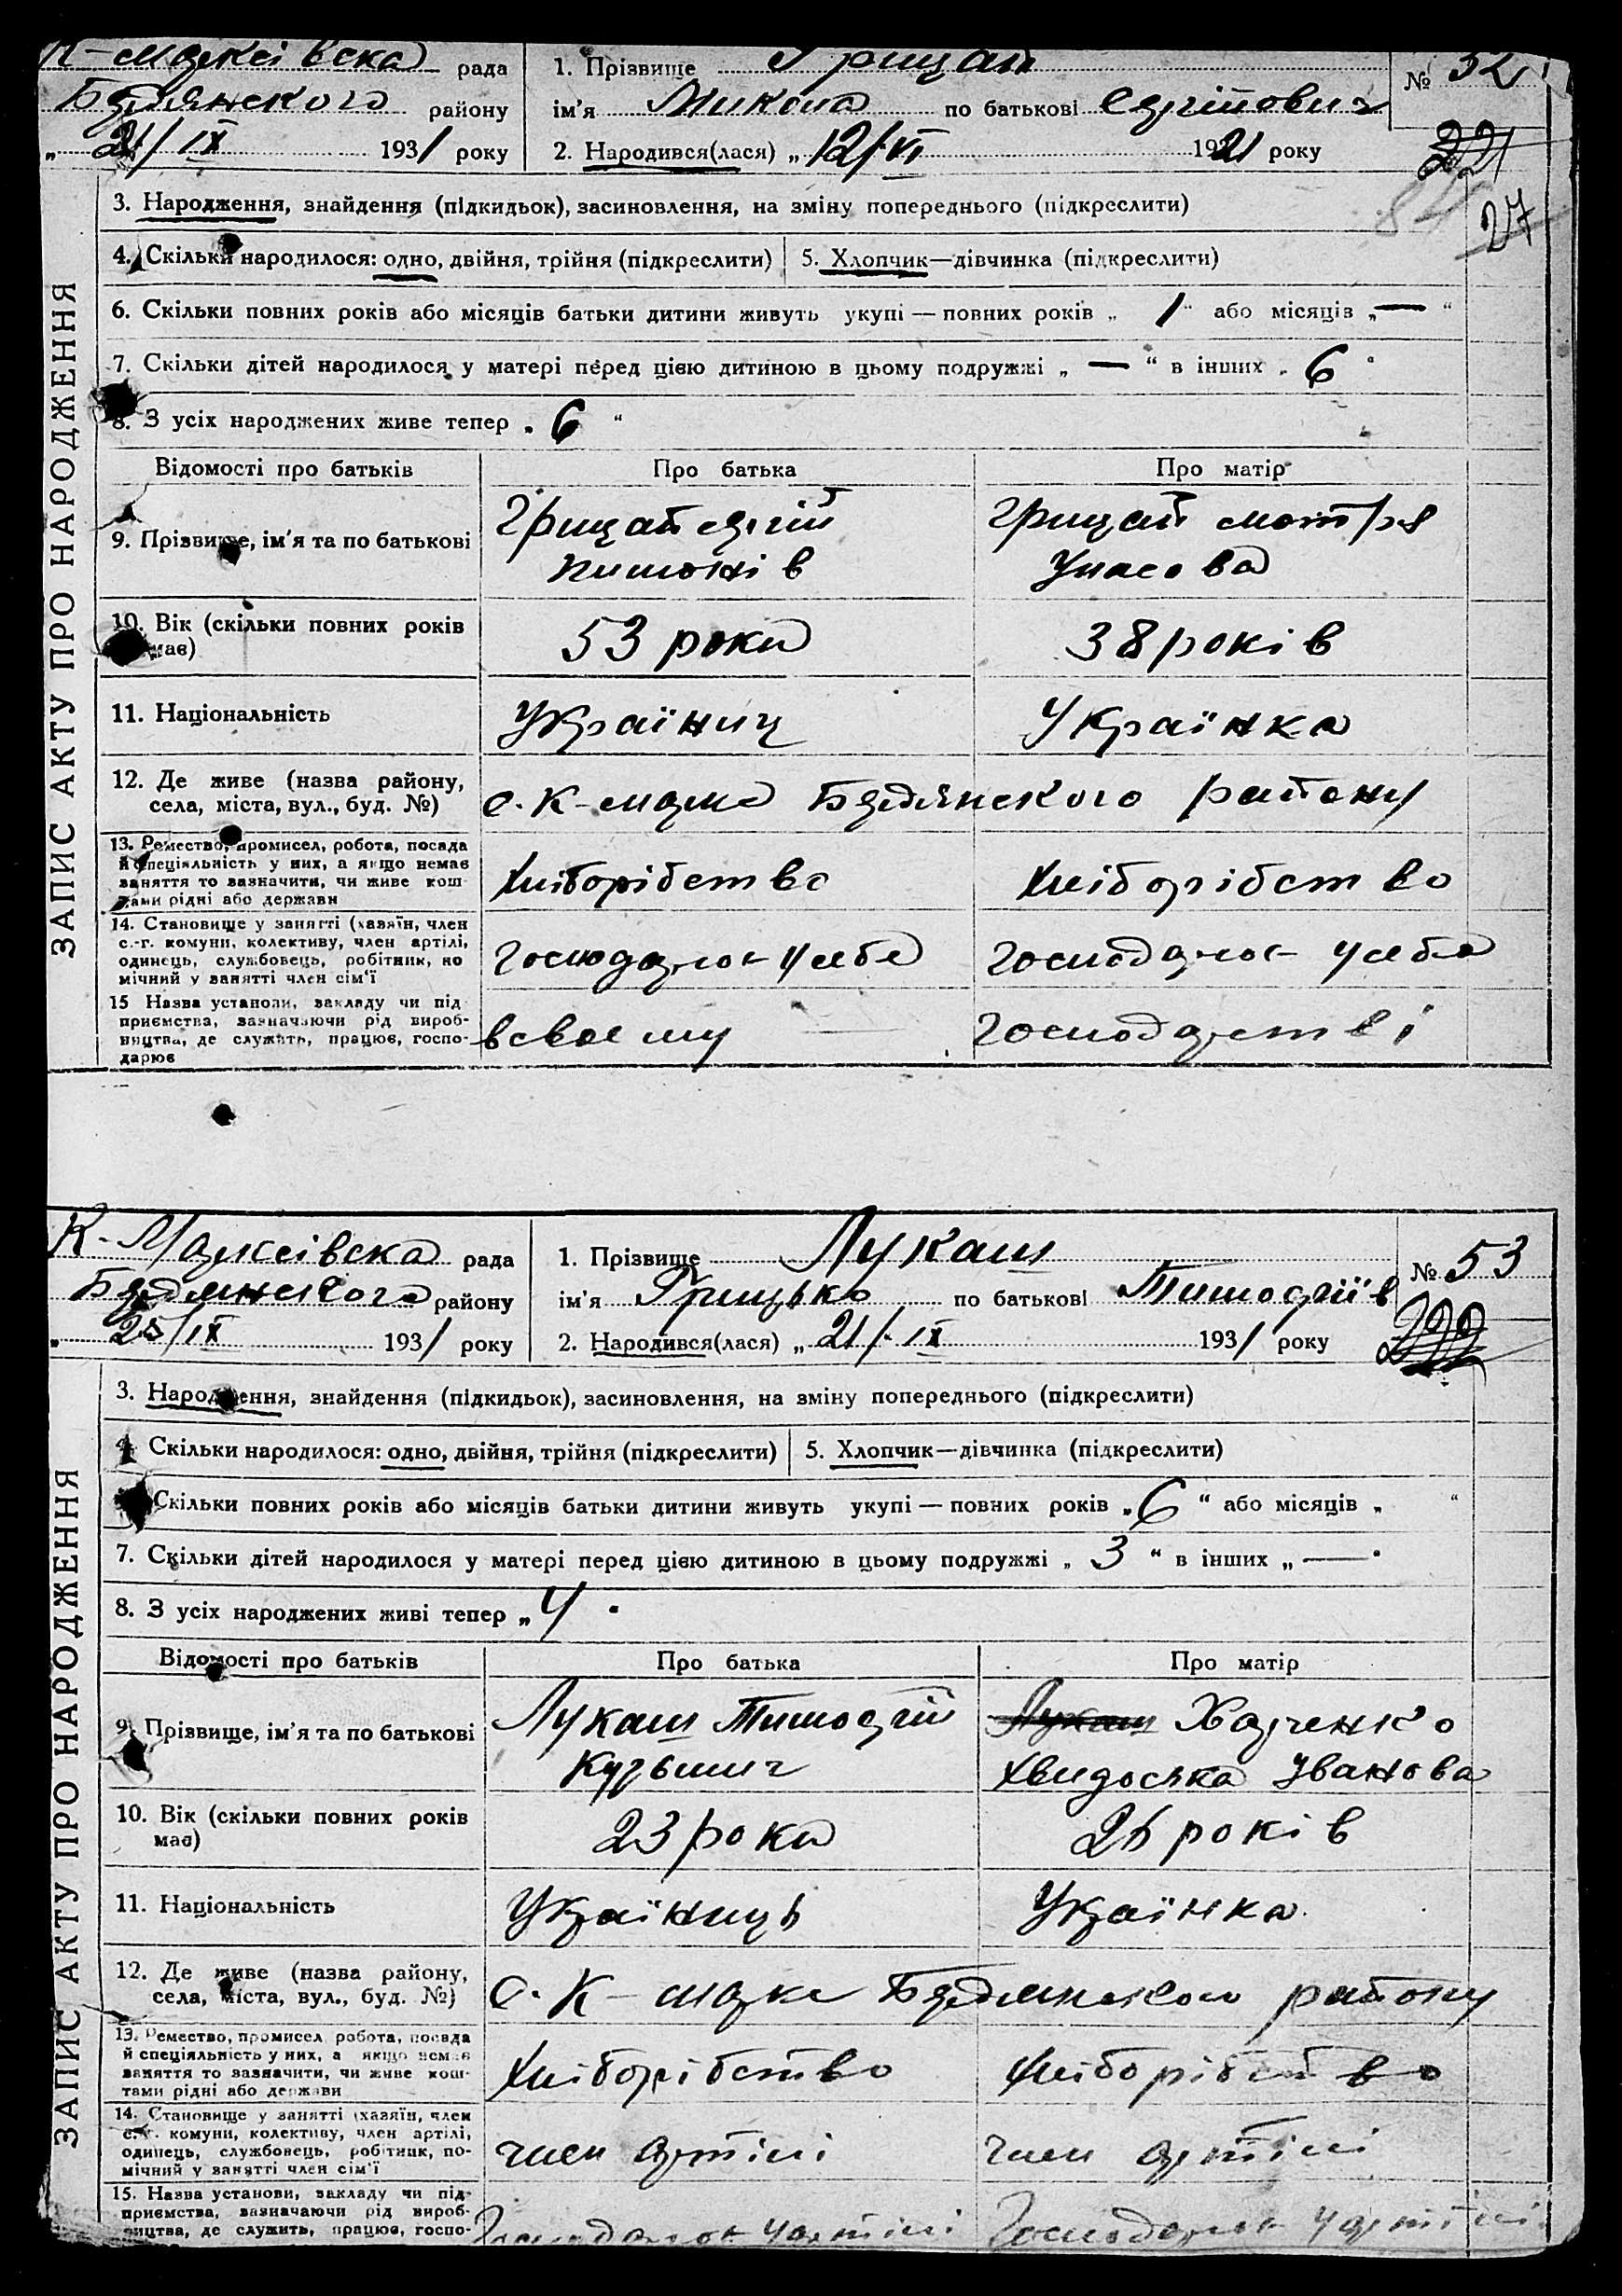 рада
району
21/IX 1931 року
1. Прізвище Грицай
ім'я Микола по батькові Сергійович
2. Народився(лася) „ 12/VI 1921 року
№ 52
221
27
ЗАПИС АКТУ ПРО НАРОДЖЕННЯ
3. Народження, знайдення (підкидьок), засиновлення, на зміну попереднього (підкреслити)
4. Скільки народилося: одно, двійня, трійня (підкреслити) 5. Хлопчик—дівчинка (підкреслити)
6. Скільки повних років або місяців батьки дитини живуть укупі — повних років „ 1 “ або місяців „ — “
7. Скільки дітей народилося у матері перед цією дитиною в цьому подружжі „ — “ в інших „ 6 “
8. З усіх народжених живе тепер „ 6 “
Відомості про батьків Про батька Про матір
9. Прізвище, ім'я та по батькові
Грицай Сергій Грицай Мотря
Пимонів Власова
10. Вік (скільки повних років має)
53 роки 38 років
11. Національність Українец Українка
12. Де живе (назва району,
села, міста, вул., буд. №)
району
13. Ремество, промисел, робота, посада
й спеціяльність у них, а якщо немає
заняття то зазначити, чи живе кош-
тами рідні або держави
Хліборібство Хліборібство
14. Становище у занятті (хазяїн, член
с.-г. комуни, колективу, член артілі,
одинець, службовець, робітник, по-
мічний у занятті член сім'ї
у себе у себе
15 Назва установи, закладу чи під-
приємства, зазначаючи рід вироб-
ництва, де служить, працює, госпо-
дарює
в своему господарстві
рада
району
25/IX 1931 року
1. Прізвище Лукаш
ім'я Грицько по батькові Тимофіїв
2. Народився(лася) „ 21/IX 1931 року
№ 53
222
ЗАПИС АКТУ ПРО НАРОДЖЕННЯ
3. Народження, знайдення (підкидьок), засиновлення, на зміну попереднього (підкреслити)
4. Скільки народилося: одно, двійня, трійня (підкреслити) 5. Хлопчик—дівчинка (підкреслити)
Скільки повних років або місяців батьки дитини живуть укупі — повних років „ 6 “ або місяців „ “
7. Скільки дітей народилося у матері перед цією дитиною в цьому подружжі „ 3 “ в інших „ — “
8. З усіх народжених живі тепер „ 4 “
Відомості про батьків Про батька Про матір
9. Прізвище, ім'я та по батькові
Лукаш Тимофій Лукаш Харченко
Кузьмич Хвидоська Іванова
10. Вік (скільки повних років
має)
23 роки 26 років
11. Національність Україниць Українка
12. Де живе (назва району,
села, міста, вул., буд. №)
району
13. Ремество, промисел робота, посада
й спеціяльність у них, а якщо немає
заняття то зазначити, чи живе кош-
тами рідні або держави
Хліборібство Хліборібство
14. Становище у занятті (хазяїн, член
с.-г. комуни, колективу, член артілі,
одинець, службовець, робітник, по-
мічний у занятті член сім'ї
член артілі член артілі
15. Назва установи, закладу чи під-
приємства, зазначаючи рід вироб-
ництва, де служить, працює, госпо-
у артілі у артілі